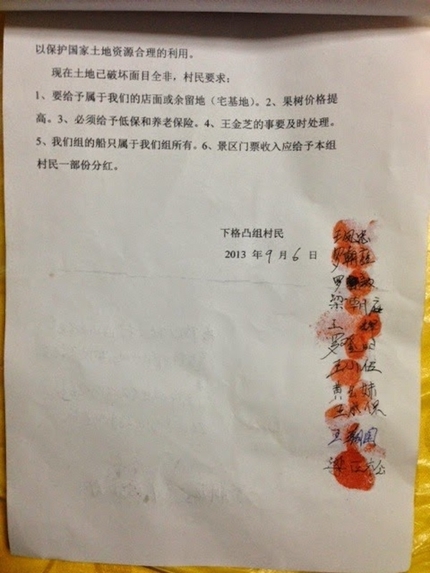 以保护国家土地资源合理的利用。
现在土地已破坏面目全非，村民要求：
1、要给予属于我们的店面或余留地（宅基地）。2、果树价格提
高。3、必须给予低保和养老保险。4、王金芝的事要及时处理。
5、我们组的船只属于我们组所有。6、景区门票收入应给予本组
村民一部份分红。
下格凸组村民
2013 年9月6日